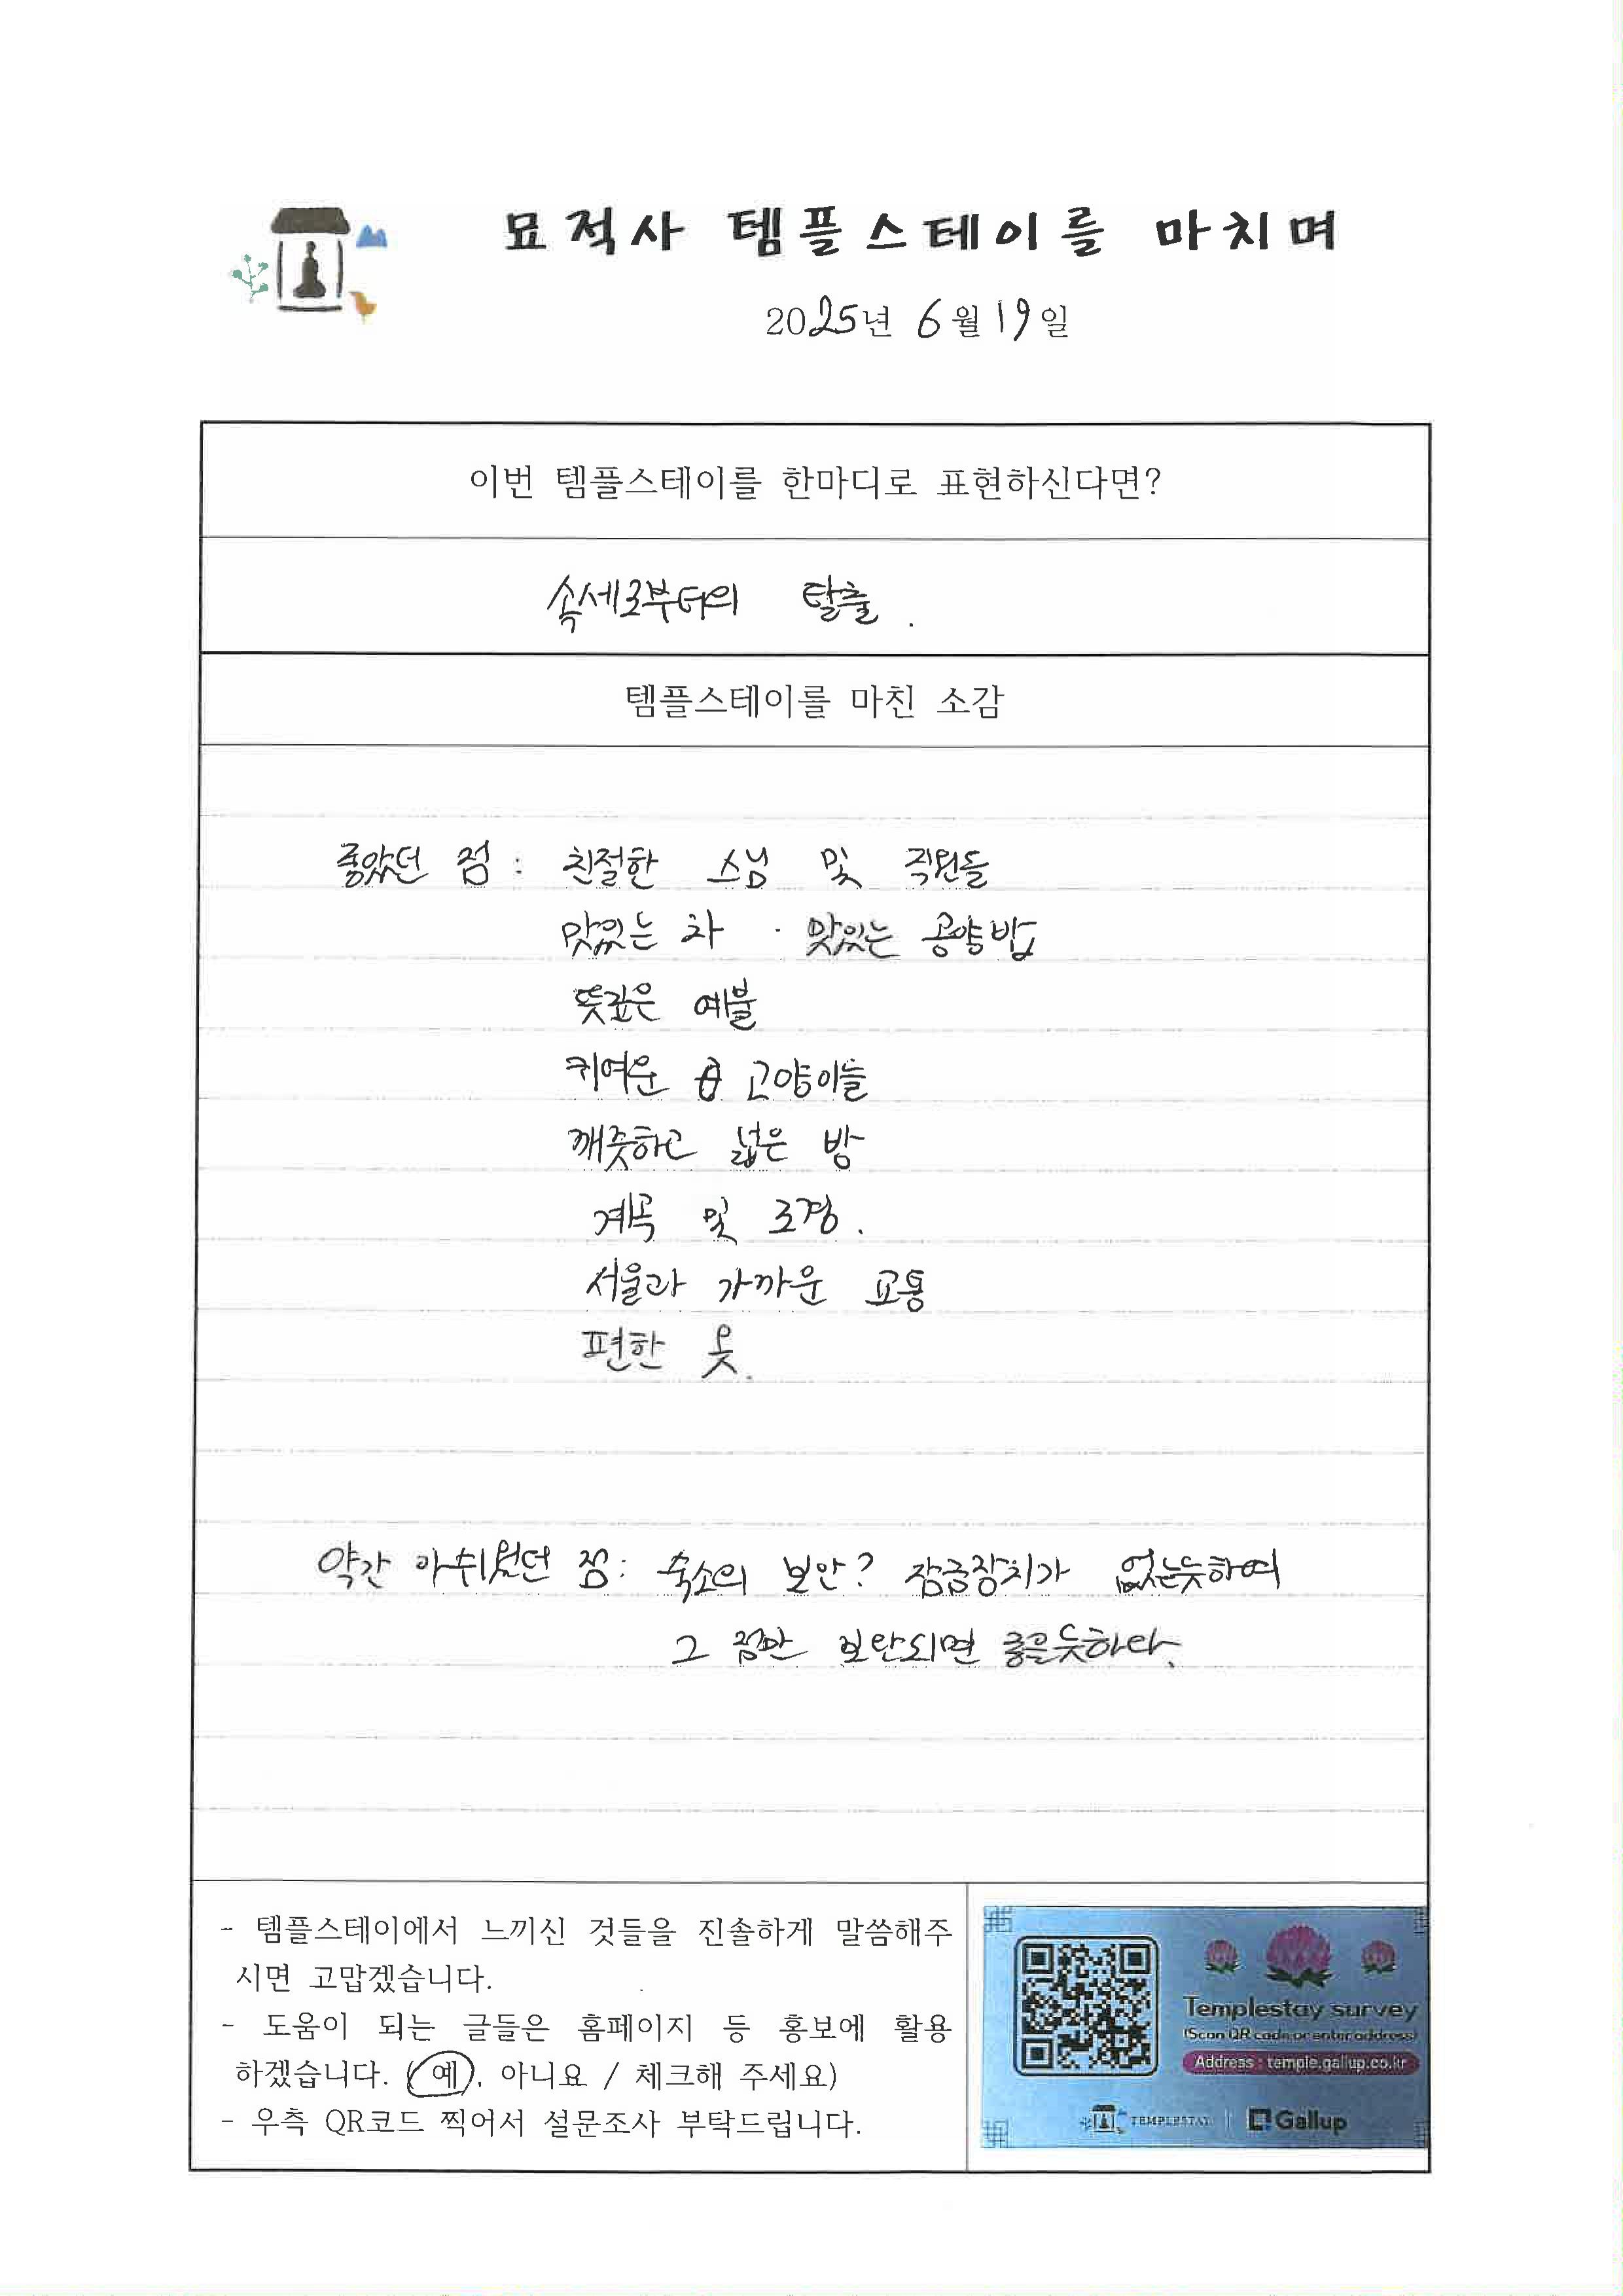 묘적사 템플스테이를 마치며
2025년 6월 19일
이번 템플스테이를 한마디로 표현하신다면?
속세로부터의 탈출.
템플스테이를 마친 소감
좋았던 점 : 친절한 스님 및 직원들
맛있는 차 · 맛있는 공양밥
뜻깊은 예불
귀여운 고양이들
깨끗하고 넓은 방
계곡 및 조경.
서울과 가까운 교통
편한 옷.
약간 아쉬웠던 점: 숙소의 보안? 잠금장치가 없는듯하여
그 점만 보완되면 좋을듯하다.
- 템플스테이에서 느끼신 것들을 진솔하게 말씀해주
시면 고맙겠습니다.
- 도움이 되는 글들은 홈페이지 등 홍보에 활용
하겠습니다. (예, 아니요 / 체크해 주세요)
- 우측 QR코드 찍어서 설문조사 부탁드립니다.
Templestay survey
(Scan QR code or enter address)
Address : temple.gallup.co.kr
TEMPLESTAY | Gallup